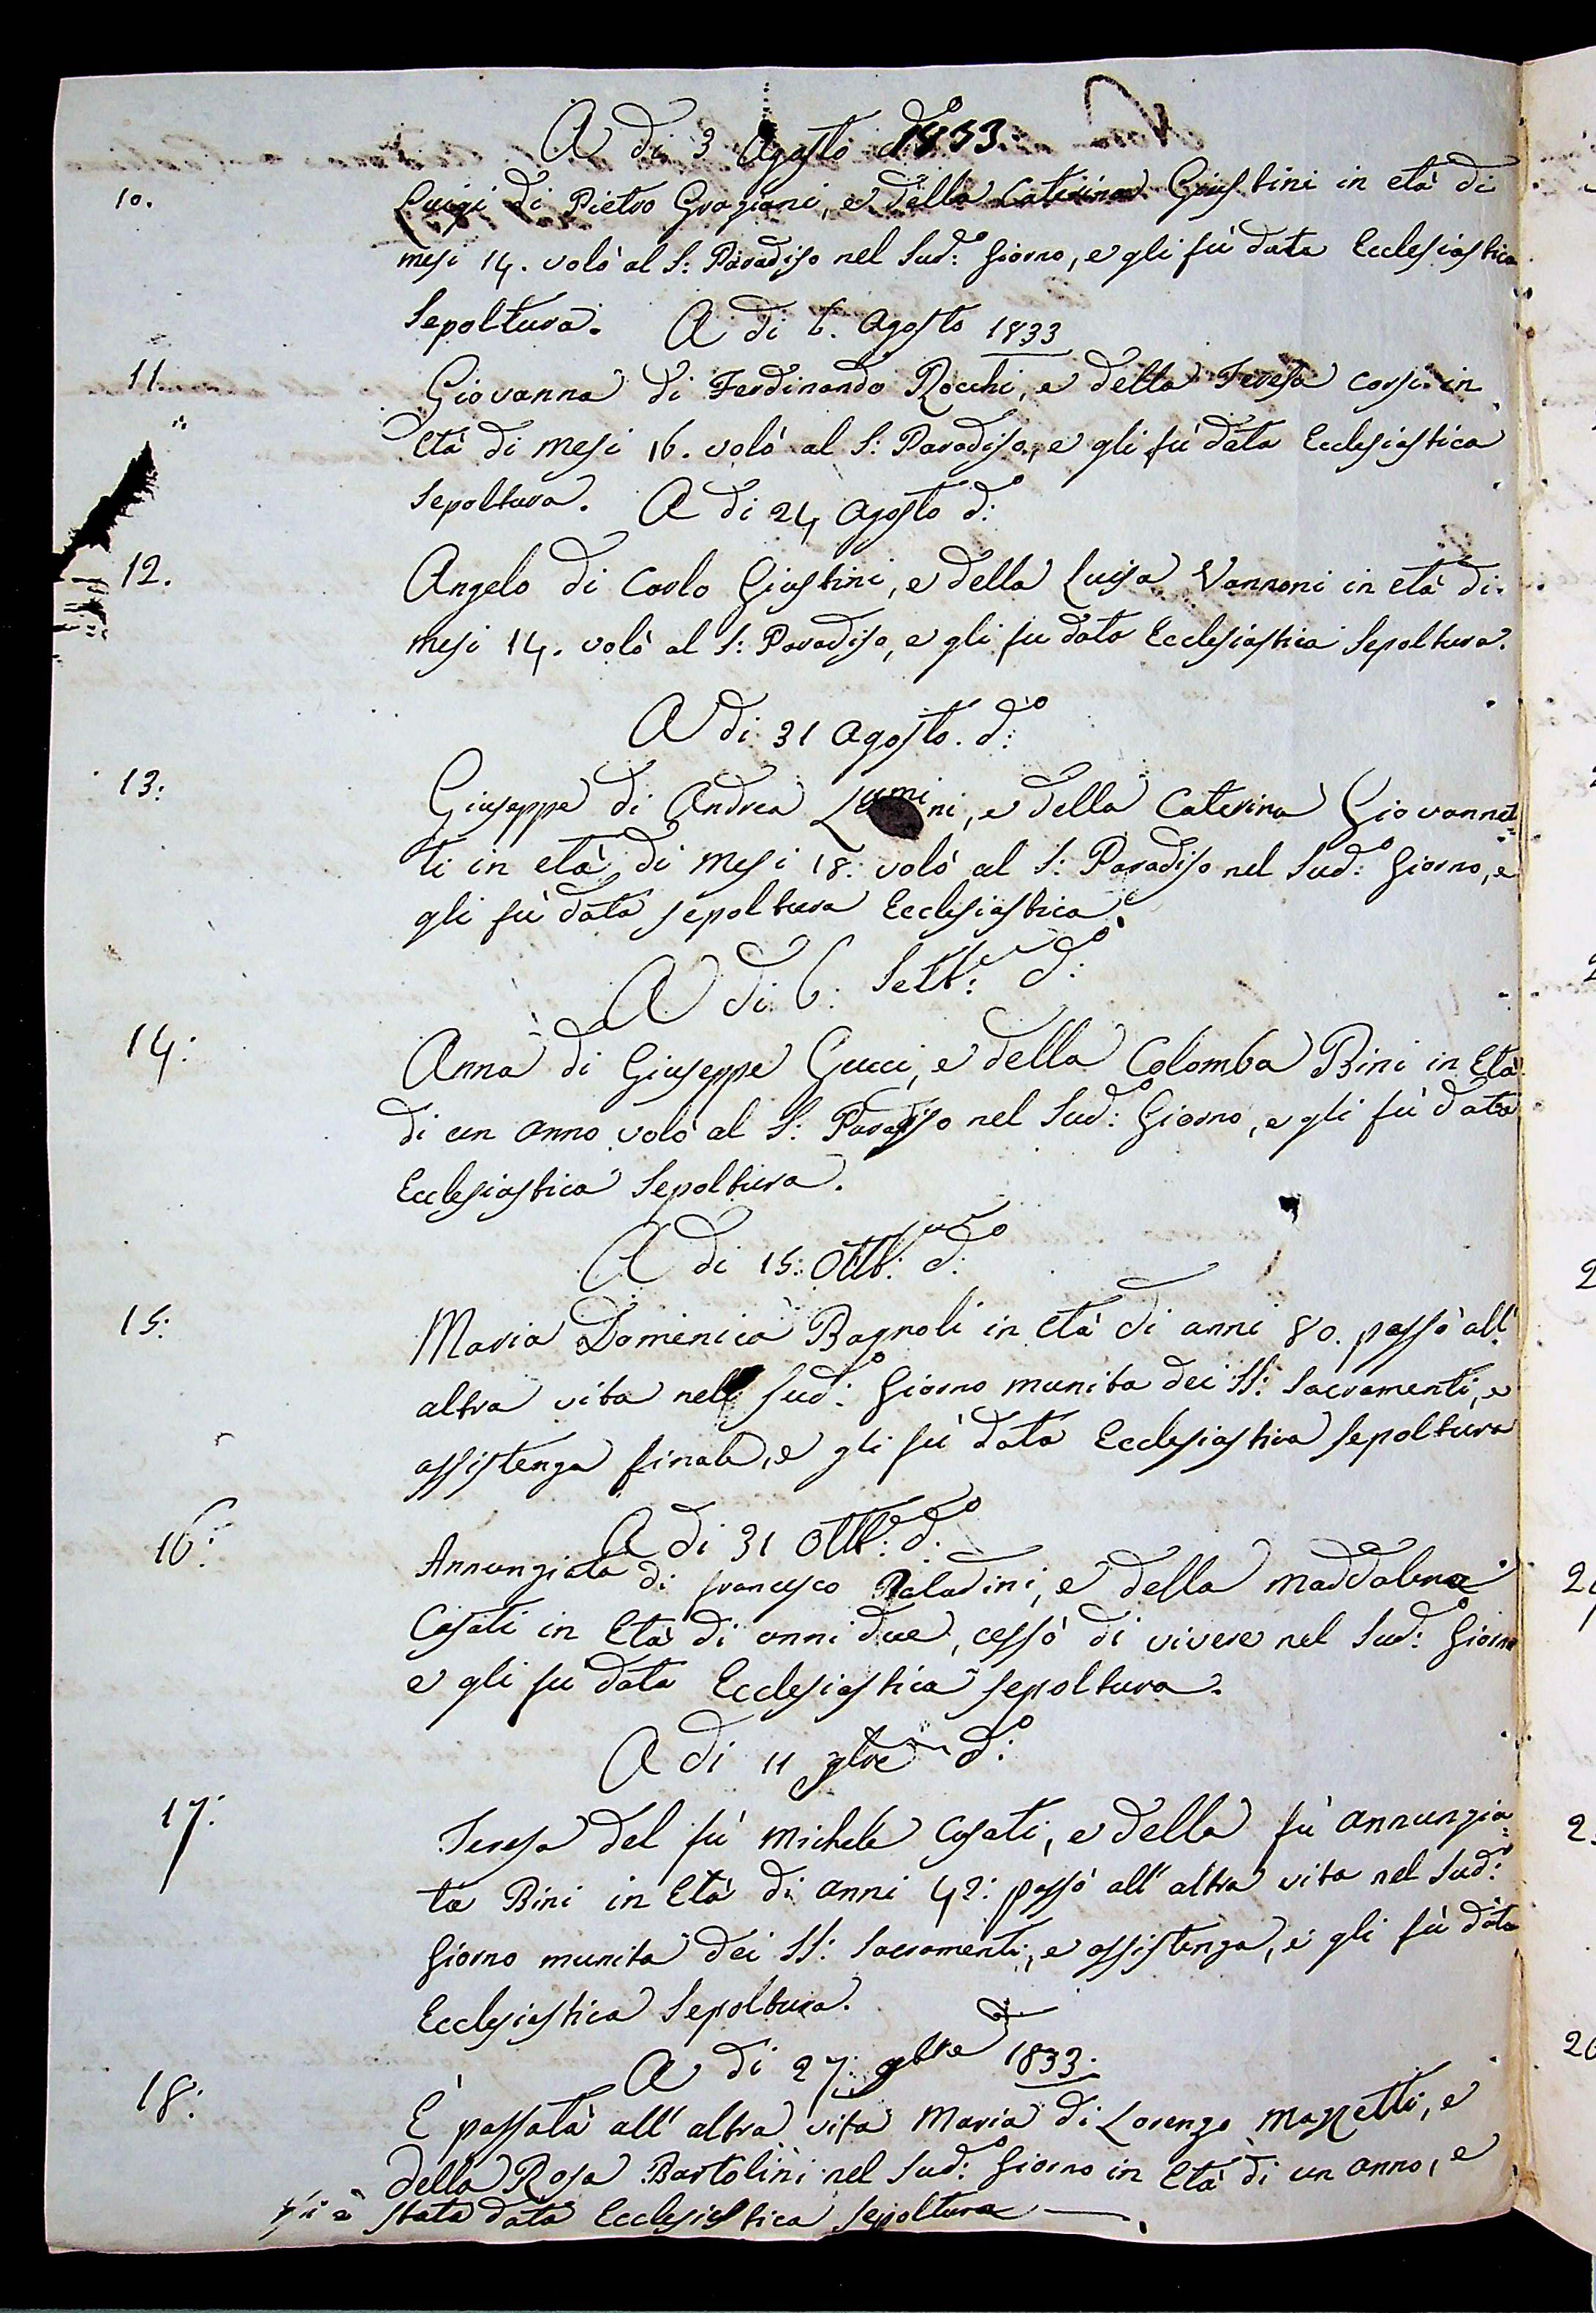 A di 3 Agosto 1833
10.
Luigi di Pietro Graziani, e della Caterina Giustini in età di
mesi 14. volò al S: Paradiso nel Sud:o Giorno, e gli fù data Ecclesiastica
Sepoltura. A di 6. Agosto 1833
11.
Giovanna di Ferdinando Rocchi, e della Teresa Corsi in
Età di mesi 16. volò al S: Paradiso, e gli fù data Ecclesiastica
Sepoltura. A di 24 Agosto d:o
12.
Angelo di Carlo Giustini, e della Luisa Vannoni in età di
mesi 14. volò al S: Paradiso, e gli fu data Ecclesiastica Sepoltura.
A di 31 Agosto. d:o
13:
Giuseppe di Andrea Lumini, e della Caterina Giovannet=
ti in età di mesi 18: volò al S: Paradiso nel Sud:o Giorno, e
gli fù data sepoltura Ecclesiastica.
A di 6: Settb:e d:o
14:
Anna di Giuseppe Gucci, e della Colomba Bini in Età
di un anno volò al S: Paradiso nel Sud:o Giorno, e gli fù data
Ecclesiastica Sepoltura.
A di 15: Ottb:e d:o
15:
Maria Domenica Bagnoli in Età di anni 80. passò all'
altra vita nel Sud:o Giorno munita dei SS: Sacramenti, e
assistenza finale, e gli fù data Ecclesiastica sepoltura
A di 31 Ottb:e d:o
16:
Annunziata di Francesco Paladini, e della Maddalena
Casati in Età di anni due, cessò di vivere nel Sud:o Giorno
e gli fù data Ecclesiastica sepoltura.
A di 11 9bre d:o
17:
Teresa del fù Michele Casati, e della fù Annunzia=
ta Bini in Età di anni 42: passò all'altra vita nel Sud:o
Giorno munita dei SS: Sacramenti, e assistenza, e gli fù data
Ecclesiastica Sepoltura.
A di 27: 9bre 1833:
18:
È passata all'altra vita Maria di Lorenzo Mazzetti, e
della Rosa Bartolini nel Sud:o Giorno in Età di un anno, e
gli è stata data Ecclesiastica sepoltura